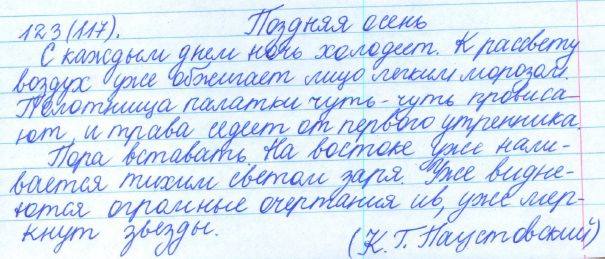 123(117). Поздняя осень
С каждым днем ночь холодеет. К рассвету
воздух уже обжигает лицо легким морозом.
Полотнища палатки чуть-чуть провиса-
ют, и трава седеет от первого утренника.
Пора вставать. На востоке уже нали-
вается тихим светом заря. Уже видне-
ются огромные очертания ив, уже мер-
кнут звезды.
(К. Г. Паустовский)